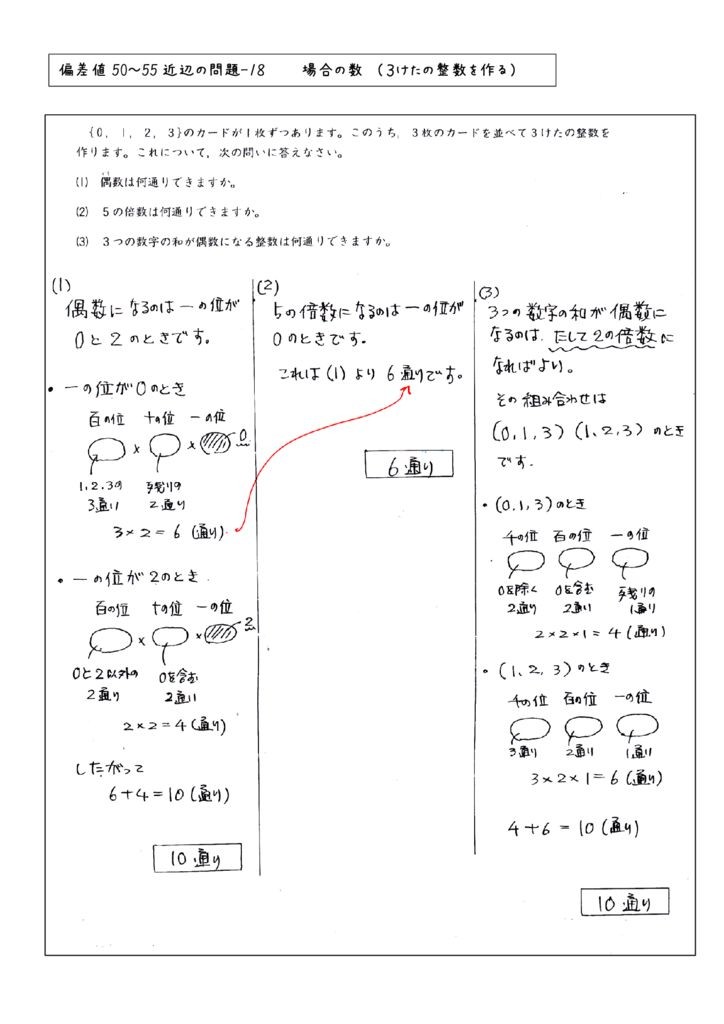 偏差値50～55近辺の問題-18　　場合の数　(3けたの整数を作る)
{0, 1, 2, 3}のカードが1枚ずつあります。このうち, 3枚のカードを並べて3けたの整数を
作ります。これについて, 次の問いに答えなさい。
(1) 偶数は何通りできますか。
(2) 5の倍数は何通りできますか。
(3) 3つの数字の和が偶数になる整数は何通りできますか。
(1)
偶数になるのは一の位が
0と2のときです。
・一の位が0のとき
百の位　十の位　一の位
× × 0
1、2、3の　残りの
3通り　2通り
3×2=6 (通り)
・一の位が2のとき
百の位　十の位　一の位
× × 2
0と2以外の　0を含む
2通り　2通り
2×2=4(通り)
したがって
6+4=10(通り)
10通り
(2)
5の倍数になるのは一の位が
0のときです。
これは(1)より 6通りです。
6通り
(3)
3つの数字の和が偶数に
なるのは、たして2の倍数に
なればよい。
その組み合わせは
(0,1,3) (1,2,3)のとき
です.
・(0,1,3)のとき
千の位　百の位　一の位
0を除く　0を含む　残りの
2通り　2通り　1通り
2×2×1=4(通り)
・(1,2,3)のとき
千の位　百の位　一の位
3通り　2通り　1通り
3×2×1=6(通り)
4+6=10(通り)
10通り